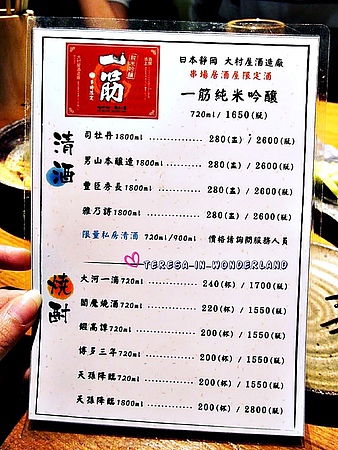 一筋
純米吟釀
日本靜岡 大村屋酒造廠
串場居酒屋限定酒
一筋純米吟釀
720ml/ 1650(瓶)
清酒
司牡丹1800ml ............ 280(盅) / 2600(瓶)
男山本釀造1800ml ......... 280(盅)/ 2600(瓶)
豐臣秀長1800ml ......... 280(盅)/ 2600(瓶)
雅乃詩1800ml ............ 280(盅)/ 2600(瓶)
限量私房清酒 720ml/900ml 價格請詢問服務人員
TERESA-IN-WONDERLAND
燒酎
大河一滴720ml ............ 240(杯) / 1700(瓶)
閻魔燒酒720ml ............ 220(杯) / 1550(瓶)
鍛高譚720ml ............ 200(杯) / 1550(瓶)
博多三年720ml ............ 200(杯)/ 1550(瓶)
天孫降臨720ml ............ 200(杯) / 1550(瓶)
天孫降臨1800ml ............ 200(杯) / 2800(瓶)